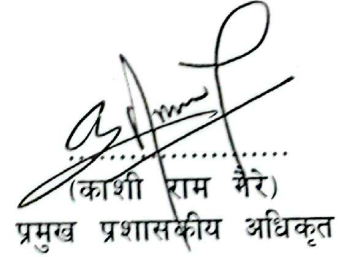 (काशी राम गैरे)
प्रमुख प्रशासकीय अधिकृत